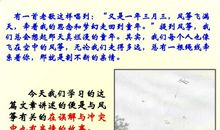 有一首诗歌这样唱到：“又是一年三月三，风筝飞满
天，牵着我的思念和梦幻走回到童年。”提到风筝，我
们总会想起那天真烂漫的童年。我们每个人也像
飞在空中的风筝，无论我们走得多远，总有一根绳线牵
系着你，那就是割不断的亲情。
今天我们学习的这
篇文章讲述的便是与风
筝有关的在误解与冲突
中也有亲情的故事。